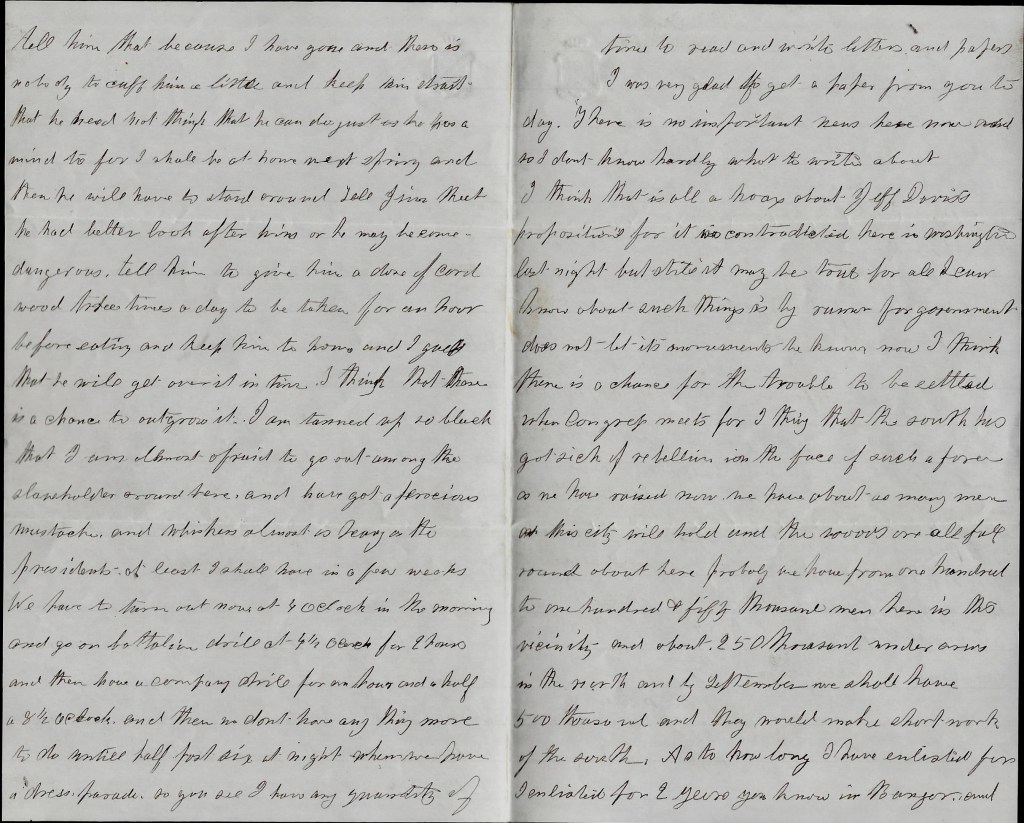 tell him that because I have gone and there is
nobody to cuff him a little and keep him strait
that he need not think that he can do just as he has a
mind to for I shall be at home next spring and
then he will have to stand around Tell Jim that
he had better look after him or he may become
dangerous. tell him to give him a dose of cord
wood three times a day to be taken for an hour
before eating and keep him to home and I guess
that he will get over it in time I think that there
is a chance to outgrow it. I am tanned up so black
that I am almost afraid to go out among the
slaveholder around here, and have got a ferocious
mustache, and whiskers almost as heavy as the
presidents at least I shall have in a few weeks
We have to turn out now at 4 oclock in the morning
and go on battalion drill at 4½ oclock for 2 hours
and then have a company drill for an hour and a half
a 8½ oclock. and then we dont have any thing more
to do untill half past six at night when we have
a dress parade. so you see I have any quantity of
time to read and write letters, and papers
I was very glad to get a paper from you to
day. There is no important news here now
so I dont know hardly what to write about
I think that is all a hoax about Jeff Davis's
proposition for it contradicted here in washington
last night but still it may be true for all I can
know about such things is by rumor for government
does not let its movements be known now I think
there is a chance for the trouble to be settled
when Congress meets for I thing that the south has
got sick of rebellion in the face of such a force
as we have raised now. we have about as many men
as this city will hold and the woods are all full
round about here probly we have from one hundred
to one hundred & fifty thousand men here in this
vicinity and about 250 thousand under arms
in the north and by September we shall have
500 thousand and they would make short work
of the south. As to how long I have enlisted for
I enlisted for 2 years you know in Bangor. and